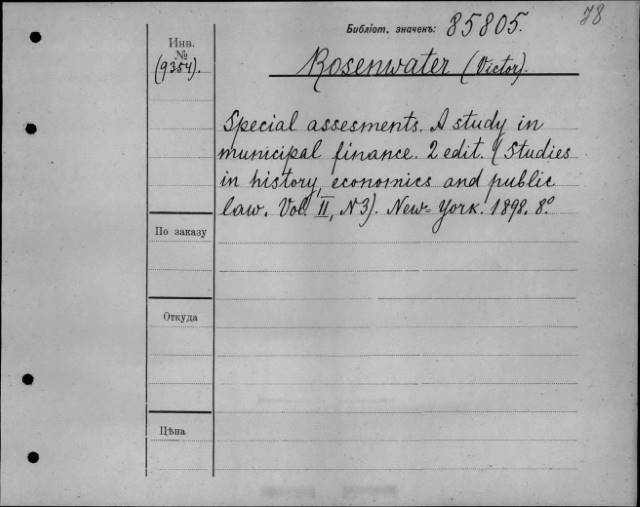 78
Библіот. значекъ: 85805.
Инв.
№
(9354).
Rosenwater (Victor).
Special assesments. A study in
municipal finance. 2 edit. (Studies
in history, economics and public
law. Vol. II, N3). New-York. 1898. 8.º
По заказу
Откуда
Цѣна